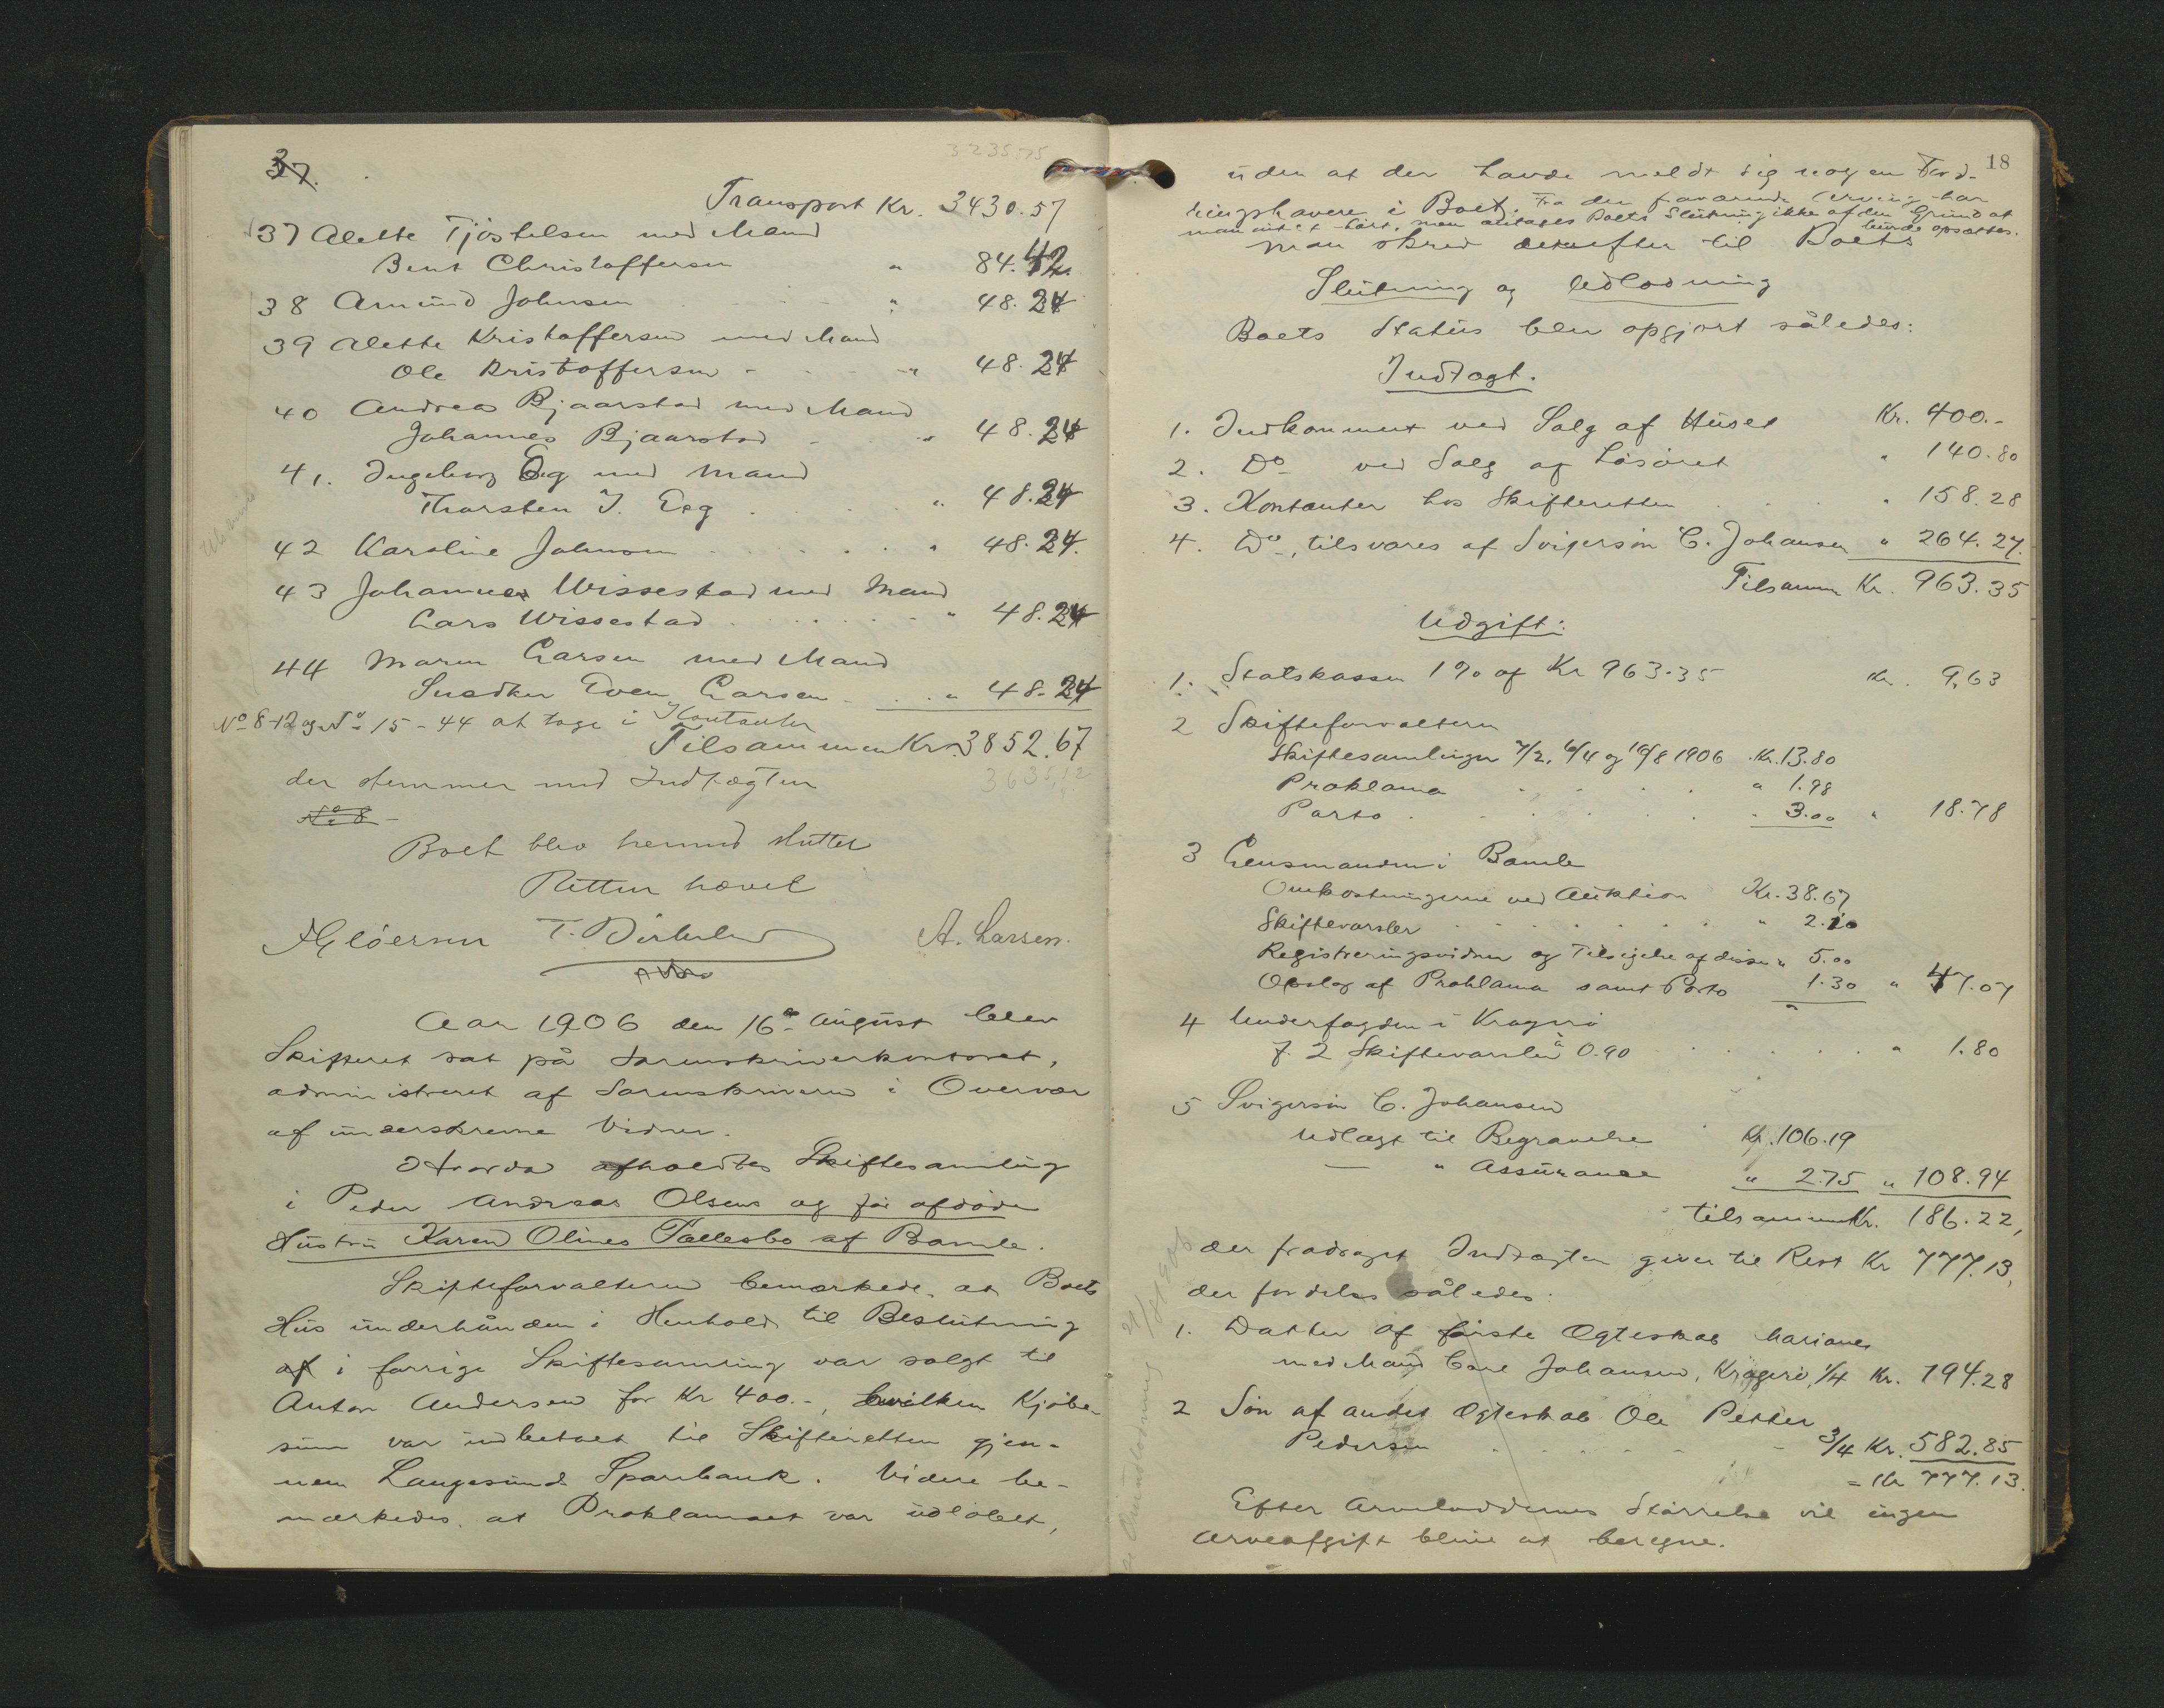 37.
3235.75
Transport Kr. 3430.57
37 Alette Tjøstelsen med Mand
Bent Christoffersen " 84.42
38 Amund Johnsen " 48.24
39 Alette Kristoffersen med Mand
Ole Kristoffersen - - - " 48.24
40 Andrea Bjaarstad med Mand
Johannes Bjaarstad - " 48.24
41. Ingeborg Eeg med Mand
Thorsten J. Eeg . . . . " 48.24
42 Karoline Johnsen . . . . . " 48.24
43 Johanne Wissestad med Mand
Lars Wissestad . . . . . . " 48.24
44 Maren Larsen med Mand
Snedker Even Larsen . . " 48.24
No 8-12 og No 15-44 at tage i Kontanter
Tilsammen Kr. 3852.67
3635,12
der stemmer med Indtægten
No 8 -
Boet blev hermed sluttet
Retten hævet
A. Larsen.
Aar 1906 den 16de August blev
Skifteret sat på Sorenskriverkontoret,
administreret af Sorenskriveren i Overvær
af underskrevne Vidner.
Hvorda afholdtes Skiftesamling
i Peder Andreas Olsens og før afdøde
Hustru Karen Olines Fællesbo af Bamle.
Skifteforvalteren bemærkede, at Boets
Hus underhånden i Henhold til Beslutning
af i forrige Skiftesamling var solgt til
Anton Andersen for Kr 400.-, hvilken Kjøbe-
sum var indbetalt til Skifteretten gjen-
nem Langesund Sparebank. Videre be-
mærkedes, at Proklamaet var udløbet,
18
uden at der havde meldt sig nogen Ford-
ringshavere i Boet. Fra den fraværende Arving har
man intet hørt, men antages Boets Slutning ikke af den Grund at
burde opsættes.
man skred derefter til Boets
Slutning og Udlodning
Boets Status blev opgjort således:
Indtægt.
1. Indkommet ved Salg af Huset Kr. 400.-
2. Do ved Salg af Løsøret " 140.80
3. Kontanter hos Skifteretten . . . " 158.28
4. Do, tilsvares af Svigersøn C. Johansen " 264.27.
Tilsamm Kr. 963.35
Udgift:
1. Statskassen 1% af Kr 963.35 Kr. 9,63
2 Skifteforvalteren
Skiftesamlinger 7/2, 6/4 og 16/8 1906 Kr. 13.80
Proklama . . . . " 1.98
Porto . . . . . . 3.00 " 18.78
3 Lensmanden i Bamle
Omkostningerne ved Auktion Kr. 38.67
Skiftevarsler . . . . . . " 2.10
Registreringsvidner og Tilsigelse af disse " 5.00
Opslag af Proklama samt Porto 1.30 " 47.07
4 Underfogden i Kragerø
f. 2 Skiftevarsler à 0.90 . . . . . " 1.80
5 Svigersøn C. Johansen
Udlagt til Begravelse Kr. 106.19
— " Assurance " 2.75 " 108.94
tilsammen Kr. 186.22,
der fradraget Indtægten giver til Rest Kr 777.13,
der fordeles således:
1. Datter af første Ægteskab Mariane
med Mand Carl Johansen, Kragerø, 1/4 Kr. 194.28
2 Søn af andet Ægteskab Ole Petter
Pedersen . . . . . - 3/4 Kr. 582.85
= Kr 777.13.
Efter Arveloddernes Størrelse vil ingen
Arveafgift blive at beregne.